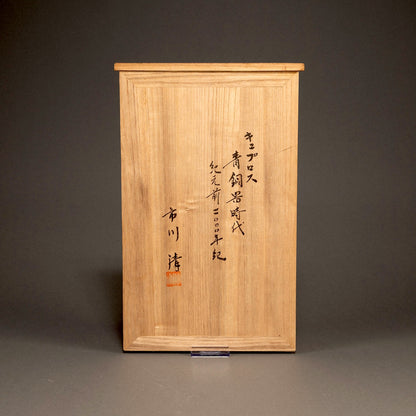 キュプロス
青銅器時代
紀元前二〇〇〇年紀
市川 清